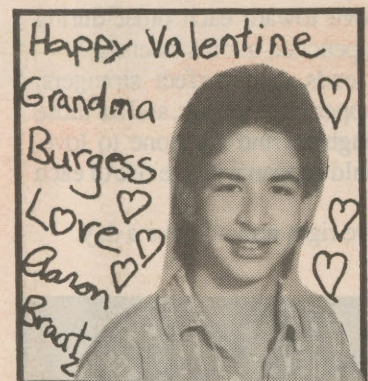 Happy Valentine
Grandma
Burgess
Love
Aaron
Braatz